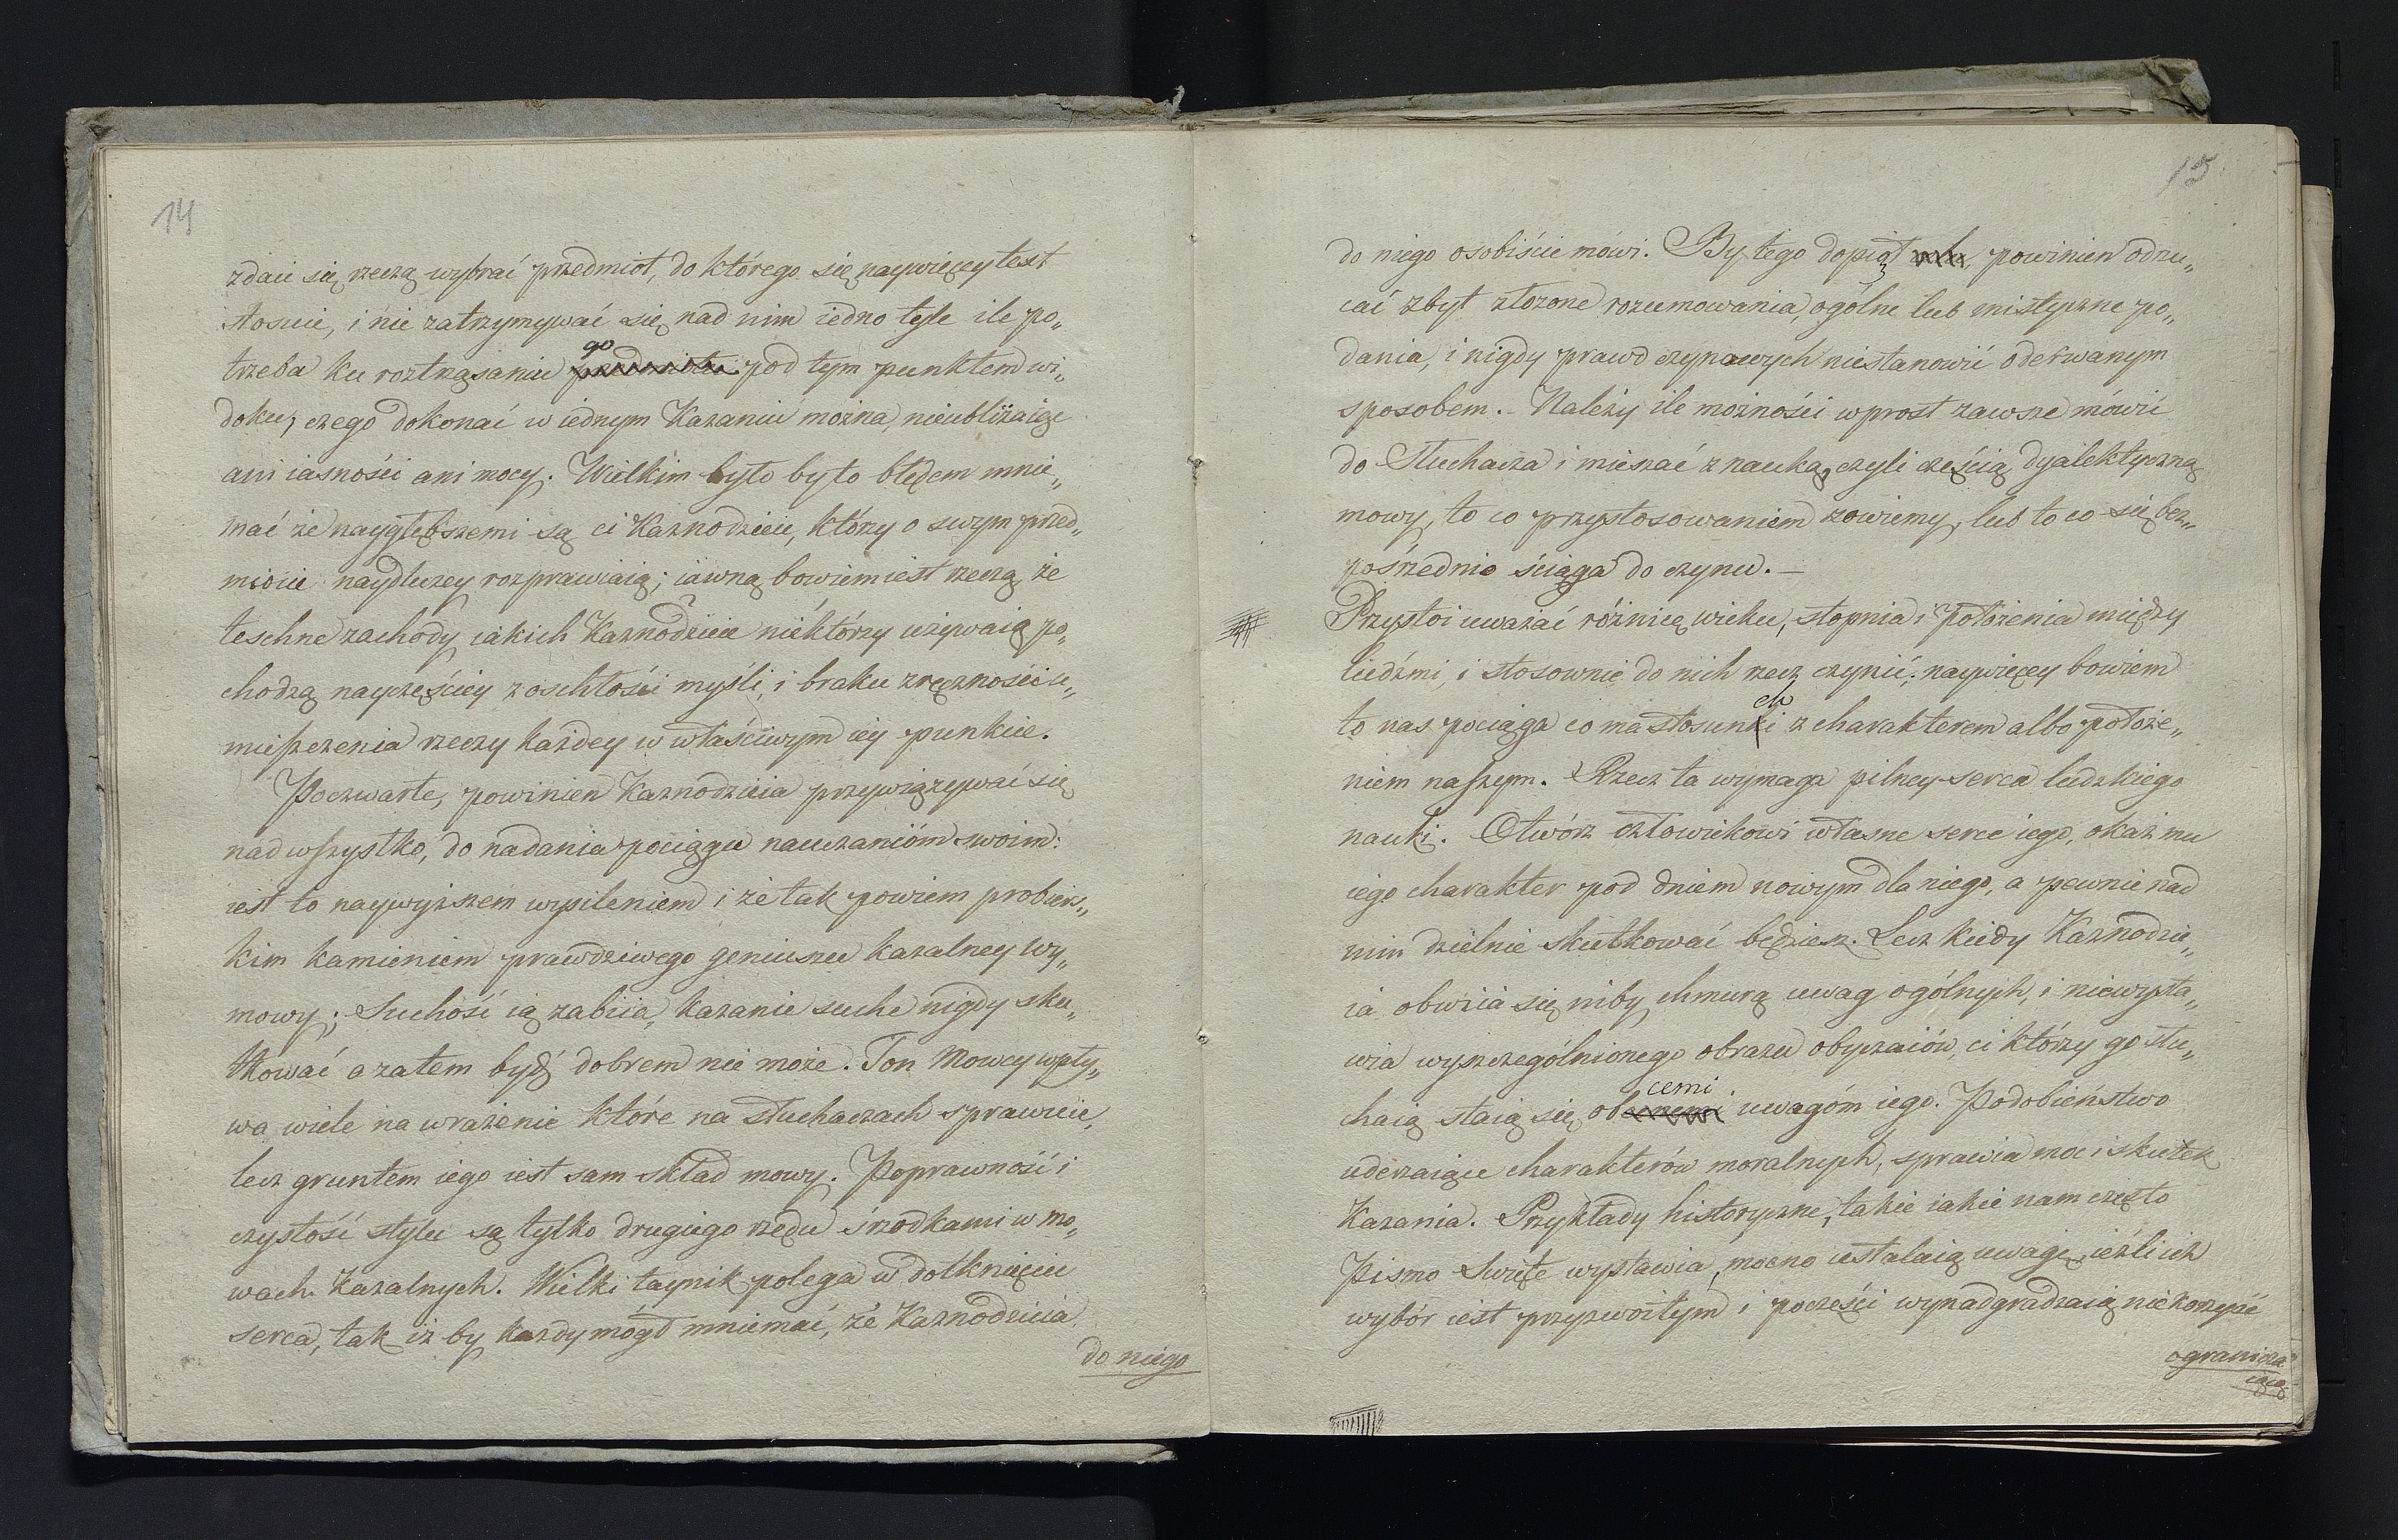 14
zdaie się rzeczą wybrać przedmiot, do którego się naywięcey text
stosuie, i nie zatrzymywać się nad nim iedno tyle ile po„
trzeba ku roztrząsaniu go przedmiotu pod tym punktem wi„
doku, czego dokonać w iednym Kazaniu można, nieubliżaiąc
ani iasności ani mocy. Wielkim było by to błędem mnie„
mać że naygłębszemi są ci Kaznodzieie, którzy o swym przed„
miocie naydłużey rozprawiaią; iawną bowiem iest rzeczą że
teschne zachody iakich Kaznodzieie niektórzy używaią po„
chodzą nayczęściey z oschłości myśli, i braku zręczności u„
mieszczenia rzeczy każdey w właściwym iey punkcie.
Poczwarte, powinien Kaznodzieia przywiązywać się
nad wszystko, do nadania pociągu nauczanióm swoim:
iest to naywyższem wysileniem i że tak powiem probiers„
kim kamieniem prawdziwego geniuszu kazalney Wy„
mowy; Suchość ią zabiia, kazanie suche nigdy sku„
tkować a zatem bydź dobrem nie może. Ton Mowcy wpły„
wa wiele na wrażenie które na słuchaczach sprawuie,
lecz gruntem iego iest sam skład mowy. Poprawność i
czystość stylu są tylko drugiego rzędu środkami w mo„
wach Kazalnych. Wielki taynik polega w dotknięciu
serca, tak iż by każdy mógł mniemać, że Kaznodzieia
do niego
15
do niego osobiście mówi. By tego dopiął celu, powinien odrzu„
cać zbyt złożone rozumowania, ogólne lub mistyczne po„
dania, i nigdy prawd czynowych niestanowić oderwanym
sposobem. Należy ile możności wprost zawsze mówić
do Słuchacza i mieszać z nauką, czyli częścią dyalektyczną
mowy, to co przystosowaniem zowiemy, lub to co się bez„
pośrzednio ściąga do czynu. –
Przystoi uważać różnicę wieku, stopnia i położenia między
ludźmi, i stosownie do nich rzecz czynić; naywięcey bowiem
to nas pociąga co ma stosunki ek z charakterem albo położe„
niem naszym. Rzecz ta wymaga pilney serca ludzkiego
nauki. Otwórz człowiekowi własne serce iego, okaż mu
iego charakter pod dniem nowym dla niego, a pewnie nad
nim dzielnie skutkować będziesz. Lecz kiedy Kaznodzie„
ia obwiia się niby chmurą uwag ogólnych, i niewysta„
wia wyszczególnionego obrazu obyczaiów, ci którzy go słu„
chaią staią się obcemi uwagóm iego. Podobieństwo
uderzaiące charakterów moralnych, sprawia moc i skutek
Kazania. Przykłady historyczne, takie iakie nam często
Pismo Swięte wystawia, mocno ustalaią uwagę, ieżli ich
wybór iest przyzwoitym i poczęści wynadgradzaią niekorzyść
ogranicza„
iącą